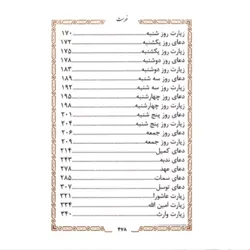 فهرست
زیارت روز شنبه ۱۷۰
دعای روز یکشنبه ۱۷۲
زیارت روز یکشنبه ۱۷۵
دعای روز دوشنبه ۱۷۸
زیارت روز دوشنبه ۱۸۳
دعای روز سه شنبه ۱۸۹
زیارت روز سه شنبه ۱۹۲
دعای روز چهارشنبه ۱۹۵
زیارت روز چهارشنبه ۱۹۸
دعای روز پنج شنبه ۲۰۱
زیارت روز پنج شنبه ۲۰۴
دعای روز جمعه ۲۰۶
زیارت روز جمعه ۲۰۹
دعای کمیل ۲۱۴
دعای ندبه ۲۴۳
دعای عهد ۲۷۸
دعای سمات ۲۸۵
دعای توسل ۳۰۷
زیارت عاشورا ۳۲۱
زیارت امین الله ۳۳۴
زیارت وارث ۳۴۰
۴۷۸